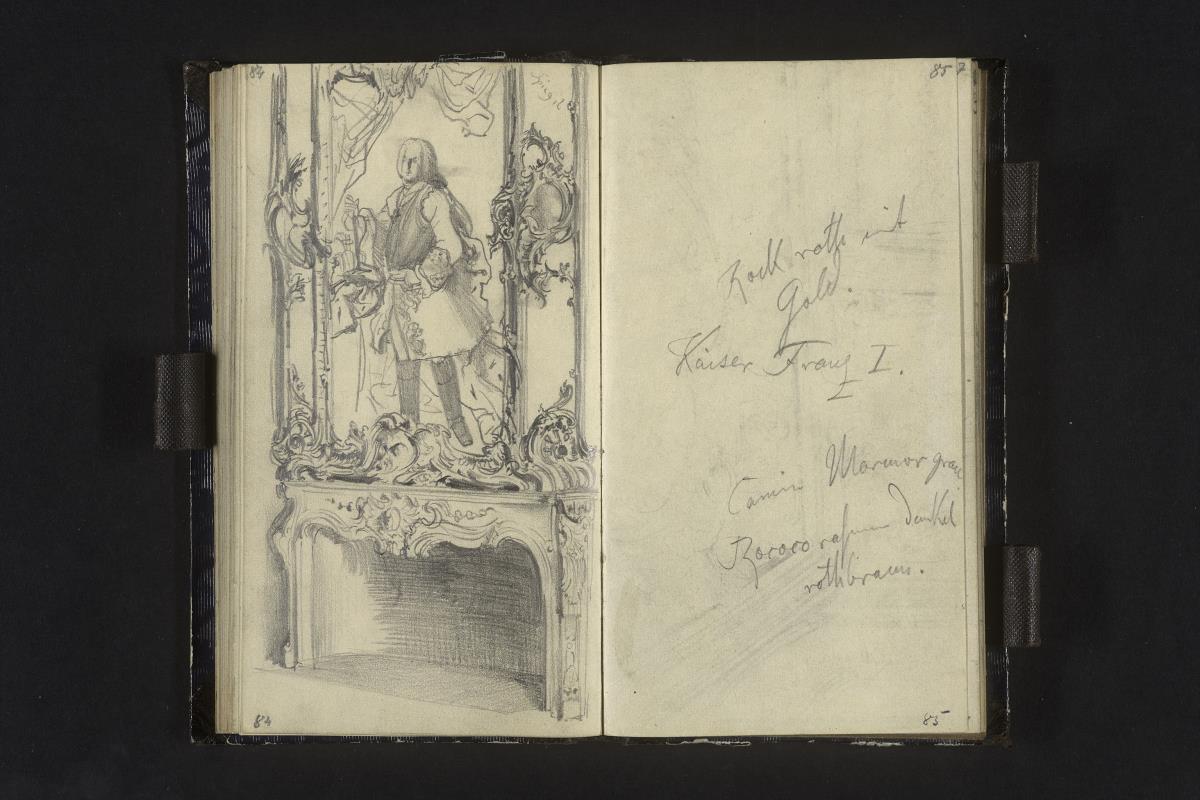 84
Spiegel
84
85
Rock roth mit
Gold.
Kaiser Franz I.
Camin Marmor grau
Rococorahmen dunkel
rothbraun.
85